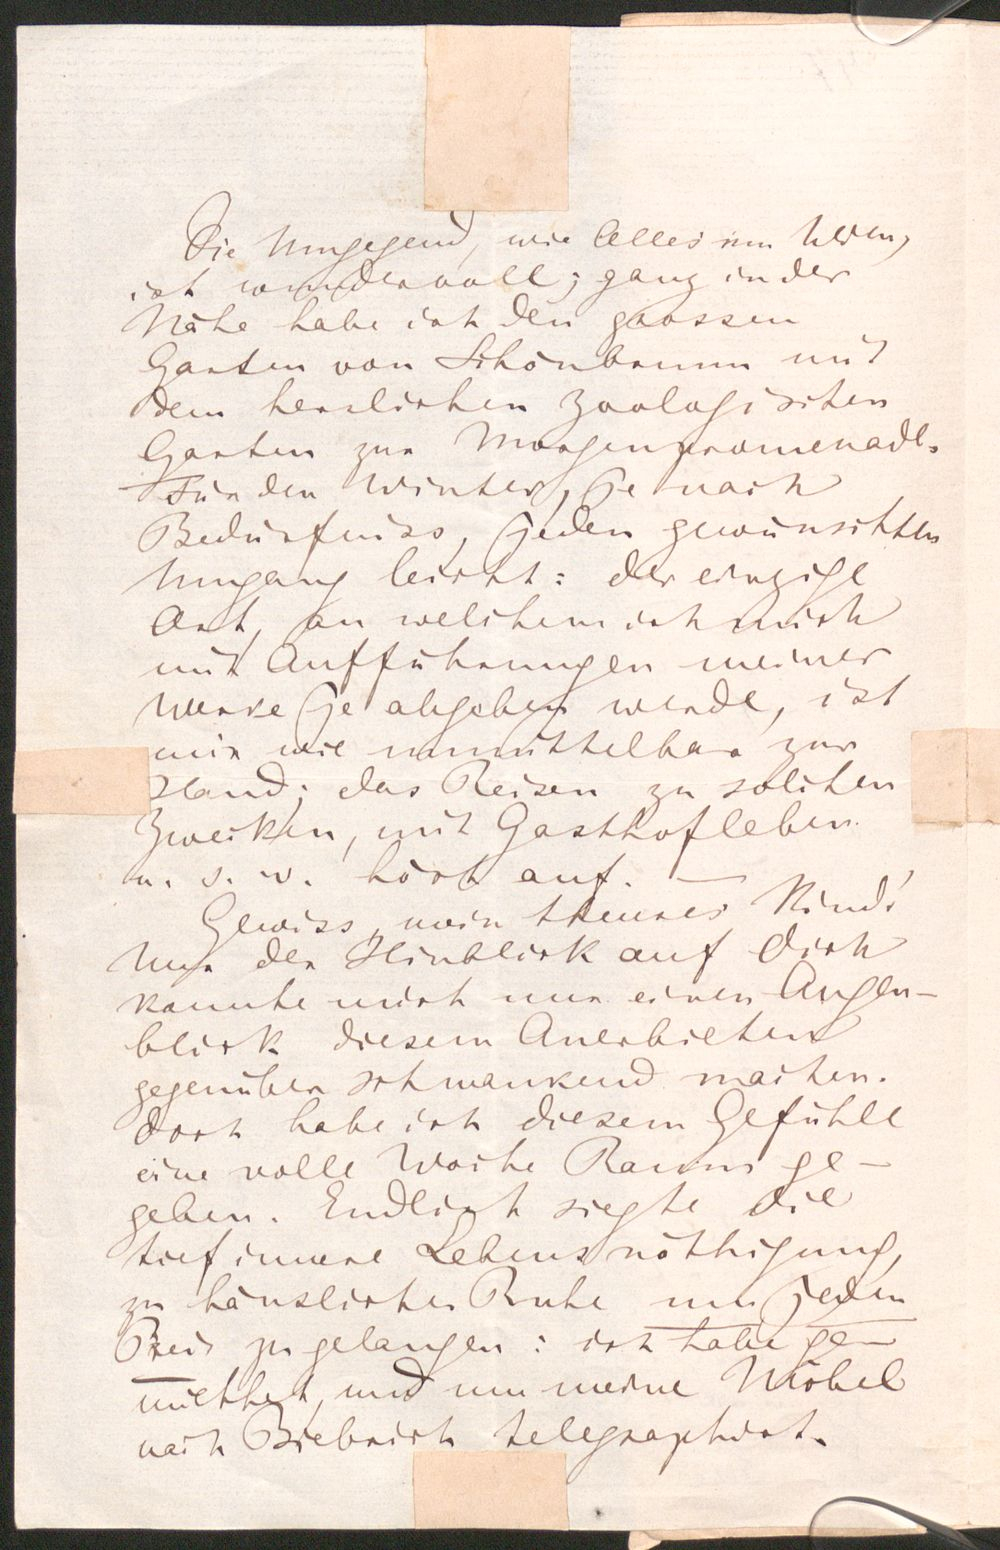 Die Umgegend, wie Alles um Wien,
ist wundervoll; ganz in der
Nähe habe ich den grossen
Garten von Schönbrunn mit
dem herrlichen zoologischen
Garten zur Morgenpromenade.
Für den Winter, je nach
Bedürfniss, jeden gewünschten
Umgang leicht: der einzige
Ort, an welchem ich mich
mit Aufführungen meiner
Werke je abgeben werde, ist
mir wie unmittelbar zur
Hand; das Reisen zu solchen
Zwecken, mit Gasthofleben
u. s. w. hört auf. —
Gewiss, mein theures Kind!
Nur der Hinblick auf Dich
konnte mich nur einen Augen-
blick diesem Anerbieten
gegenüber schwankend machen.
Doch habe ich diesem Gefühle
eine volle Woche Raum ge-
geben. Endlich siegte die
tief innere Lebensnöthigung,
zu häuslicher Ruhe um jeden
Preis zu gelangen: ich habe ge-
miethet, und um meine Möbel
nach Biebrich telegraphirt.